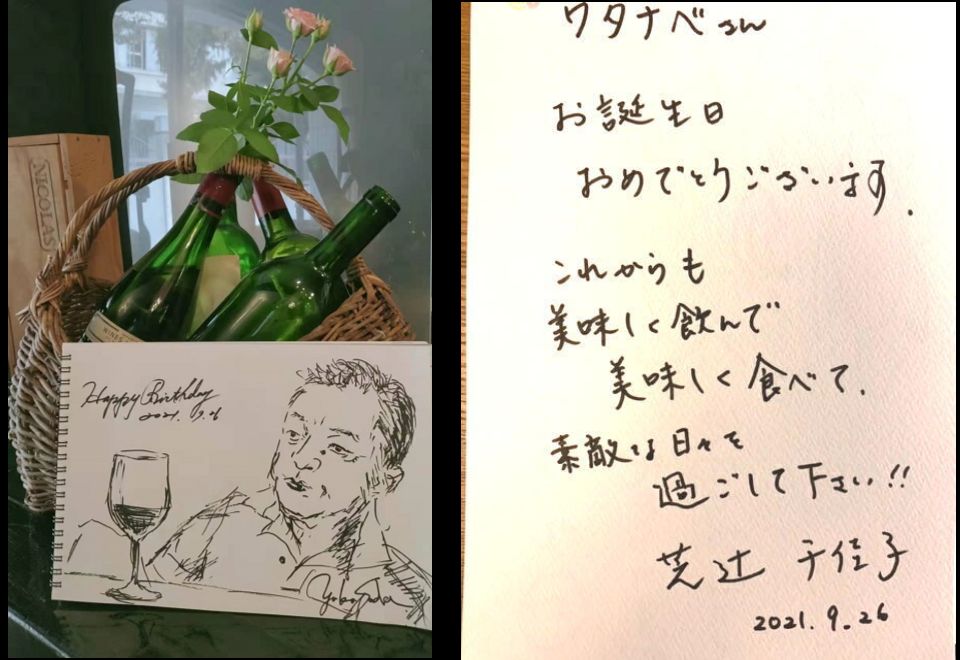 NICOLAS
WINES
Happy Birthday
2021. 9.26
ワタナベさん
お誕生日
おめでとうございます.
これからも
美味しく飲んで
美味しく食べて.
素敵な日々を
過ごして下さい!!
芝辻 千佳子
2021. 9. 26